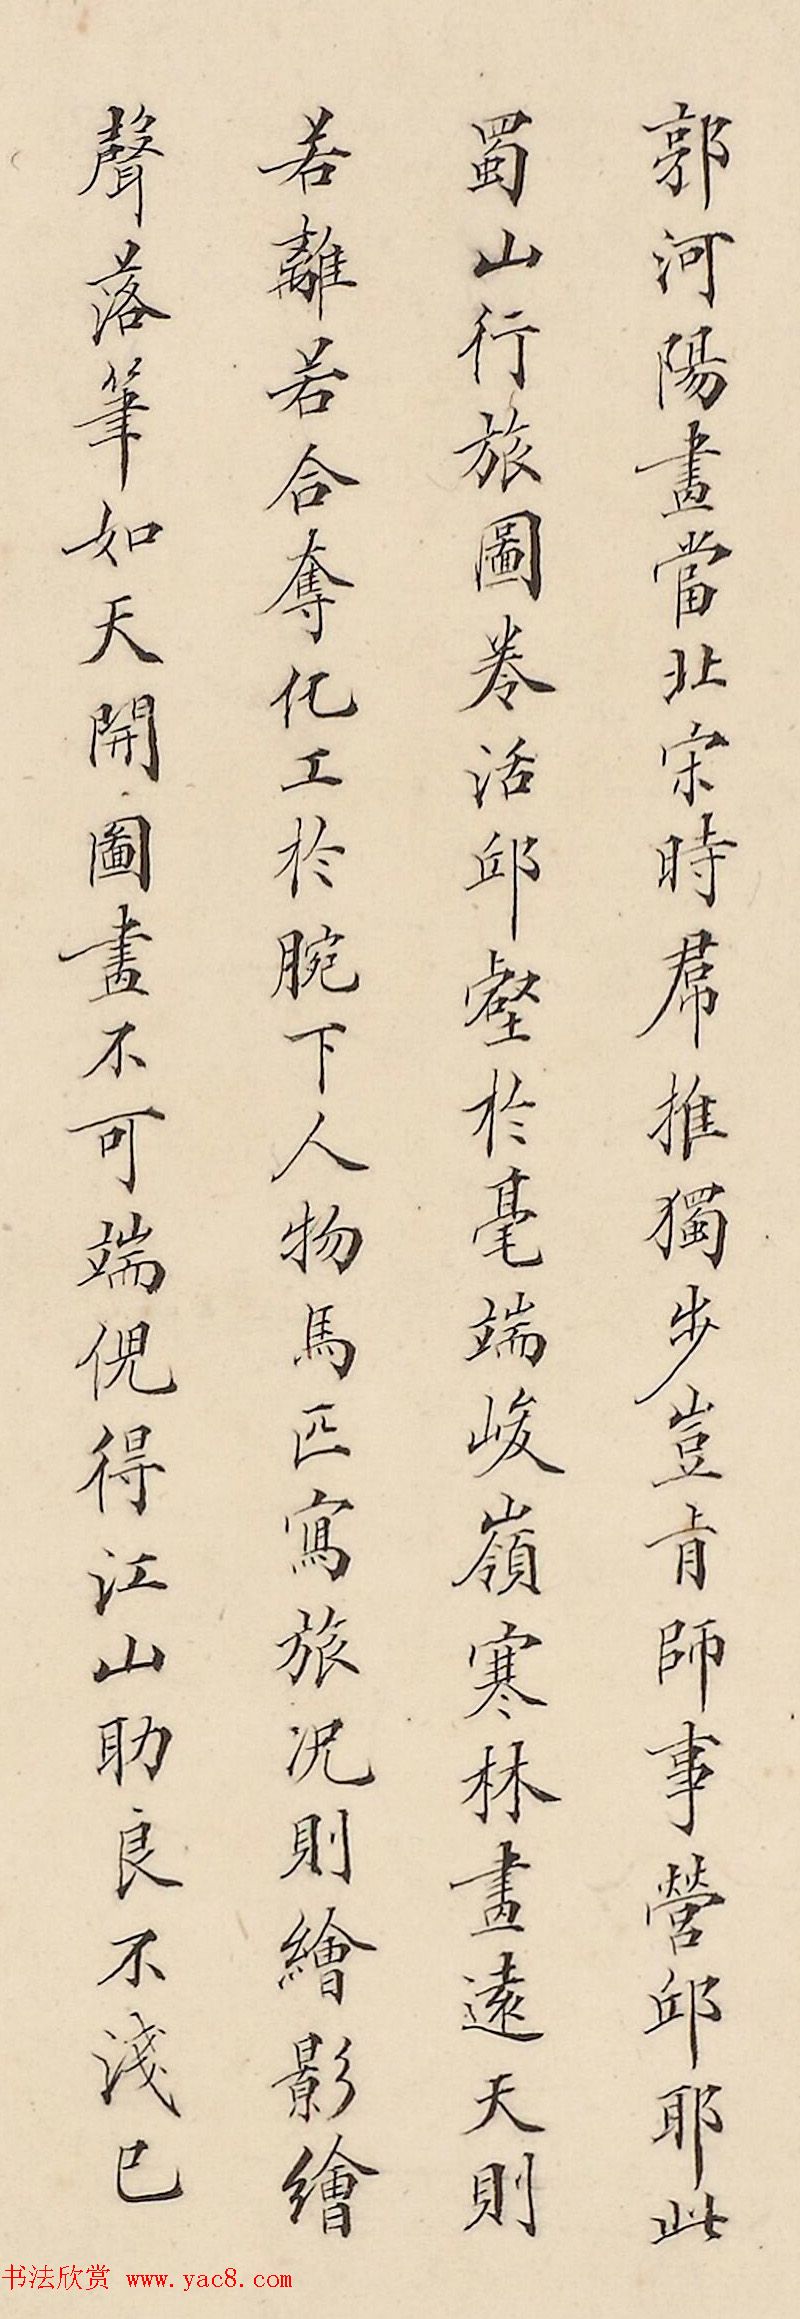 郭河陽畫當北宋時群推獨步豈肯師事營邱耶此
蜀山行旅圖卷活邱壑於毫端峻嶺寒林畫遠天則
若離若合奪化工於腕下人物馬匹寫旅況則繪影繪
聲落筆如天開圖畫不可端倪得江山助良不淺已
书法欣赏 www.yac8.com